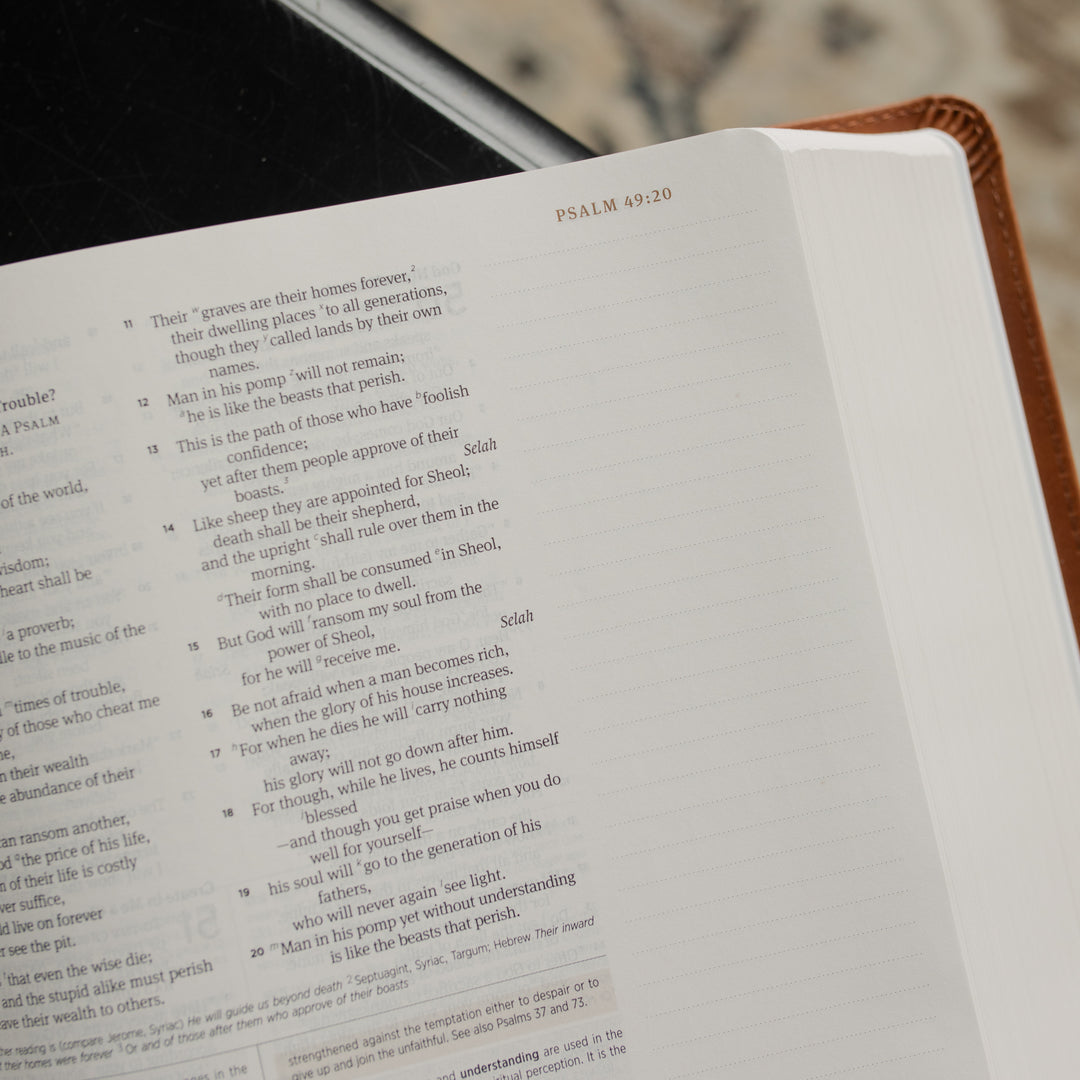 PSALM 49:20
rouble?
A PSALM
H.
of the world,
isdom;
heart shall be
a proverb;
le to the music of the
m times of trouble,
y of those who cheat me
ne,
n their wealth
e abundance of their
an ransom another,
od the price of his life,
n of their life is costly
ver suffice,
ld live on forever
r see the pit.
that even the wise die;
and the stupid alike must perish
ave their wealth to others.
11 Their w graves are their homes forever,2
their dwelling places x to all generations,
though they y called lands by their own
names.
12 Man in his pomp z will not remain;
a he is like the beasts that perish.
13 This is the path of those who have b foolish
confidence;
yet after them people approve of their
boasts.3 Selah
14 Like sheep they are appointed for Sheol;
death shall be their shepherd,
and the upright c shall rule over them in the
morning.
d Their form shall be consumed e in Sheol,
with no place to dwell.
15 But God will f ransom my soul from the
power of Sheol,
for he will g receive me. Selah
16 Be not afraid when a man becomes rich,
when the glory of his house increases.
17 h For when he dies he will i carry nothing
away;
his glory will not go down after him.
18 For though, while he lives, he counts himself
j blessed
—and though you get praise when you do
well for yourself—
19 his soul will k go to the generation of his
fathers,
who will never again l see light.
20 m Man in his pomp yet without understanding
is like the beasts that perish.
her reading is (compare Jerome, Syriac) He will guide us beyond death 2 Septuagint, Syriac, Targum; Hebrew Their inward
their homes were forever 3 Or and of those after them who approve of their boasts
es in the
strengthened against the temptation either to despair or to
give up and join the unfaithful. See also Psalms 37 and 73.
nd understanding are used in the
ritual perception. It is the